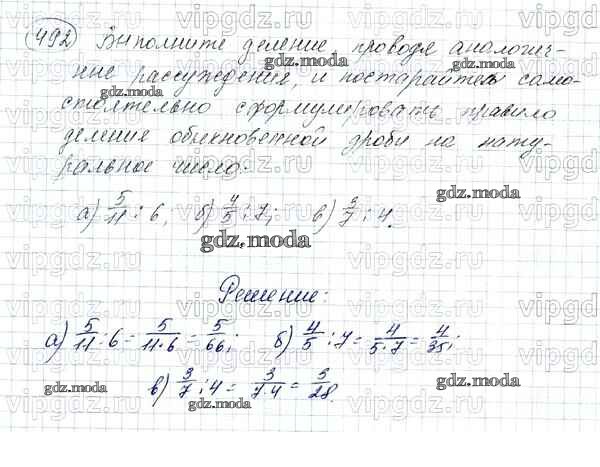 492 Выполните деление, проводя аналогич-
ные рассуждения, и постарайтесь само-
стоятельно сформулировать правило
деления обыкновенной дроби на нату-
ральное число:
а) 5/11 : 6; б) 4/5 : 7; в) 3/7 : 4.
Решение:
а) 5/11 : 6 = 5/11·6 = 5/66; б) 4/5 : 7 = 4/5·7 = 4/35;
в) 3/7 : 4 = 3/7·4 = 3/28.
vipgdz.com
gdz.moda